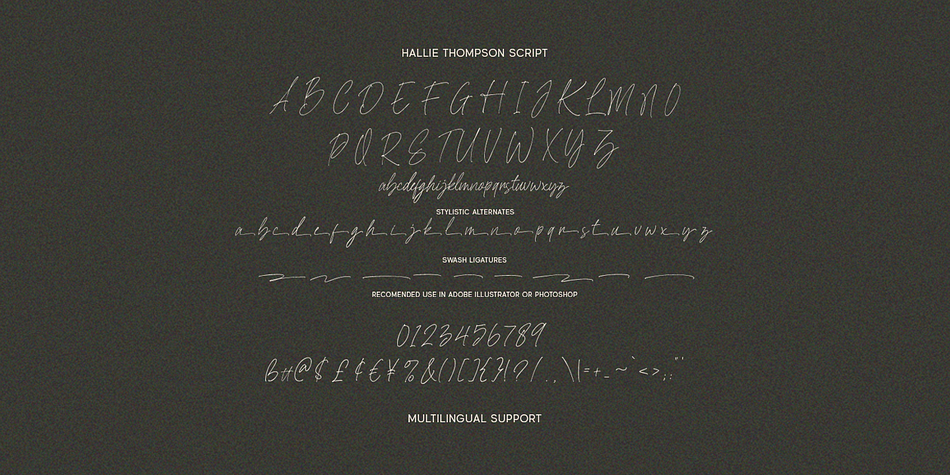 HALLIE THOMPSON SCRIPT
A B C D E F G H I J K L M N O
P Q R S T U V W X Y Z
abcdefghijklmnopqrstuvwxyz
STYLISTIC ALTERNATES
a b c d e f g h i j k l m n o p q r s t u v w x y z
SWASH LIGATURES
RECOMENDED USE IN ADOBE ILLUSTRATOR OR PHOTOSHOP
0123456789
ß#@$£¢€¥%&()[]{}!?/.,\|=+-~`<>;:"'
MULTILINGUAL SUPPORT